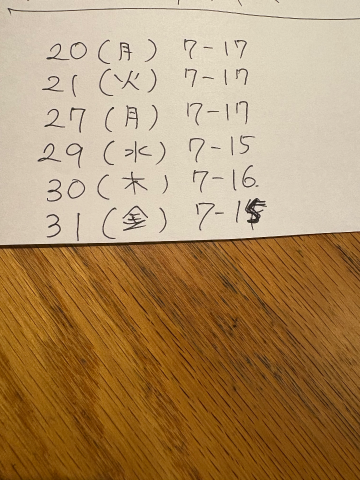 20(月) 7-17
21(火) 7-17
27(月) 7-17
29(水) 7-15
30(木) 7-16.
31(金) 7-15